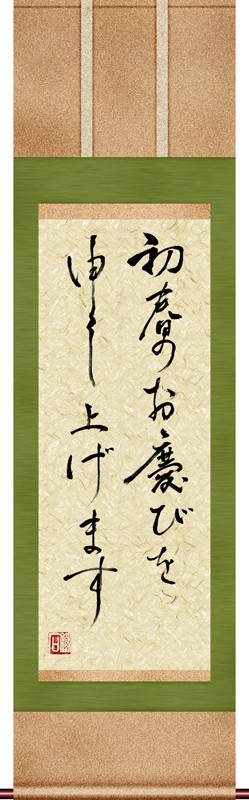 初春のお慶びを
申し上げます